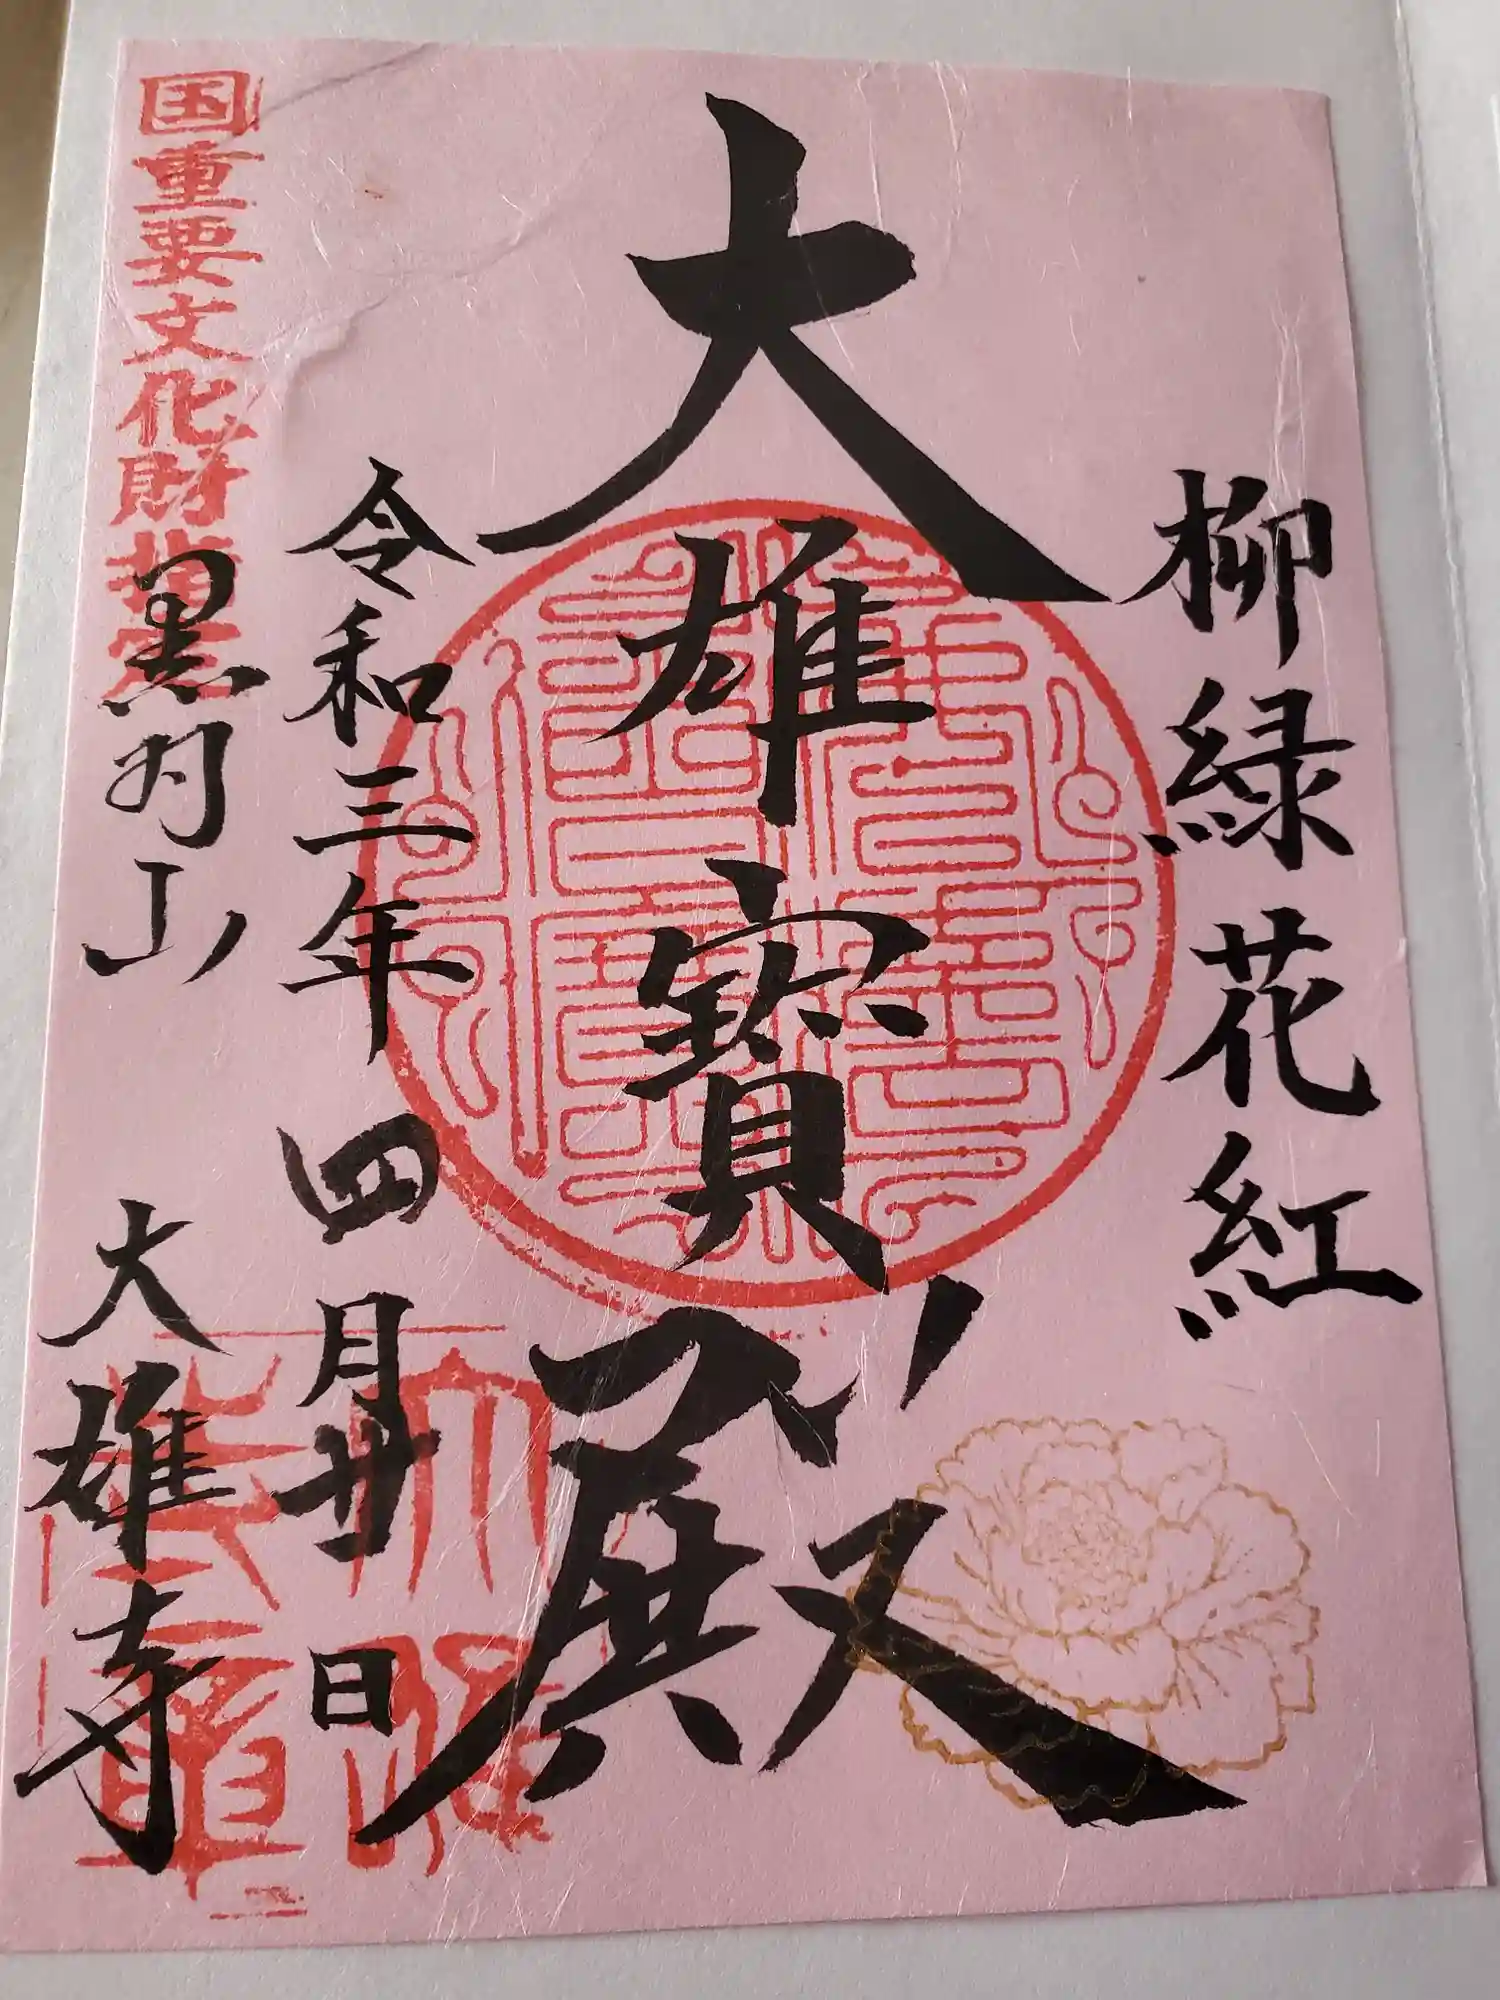 柳緑花紅
大雄寶殿
令和三年四月廿日
国重要文化財
黒羽山 大雄寺